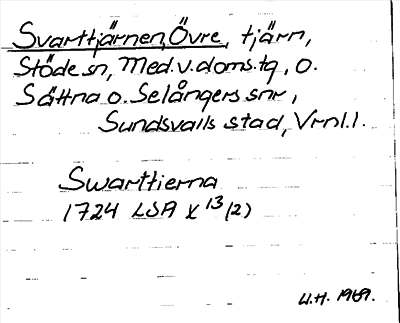 Svarttjärnen, Övre, tjärn,
Stöde sn, Med. v. doms. tg, o.
Sättna o. Selångers snr,
Sundsvalls stad, Vrnl. l.
Swarttierna
1724 LSA X 13/2)
U.H. 1969.